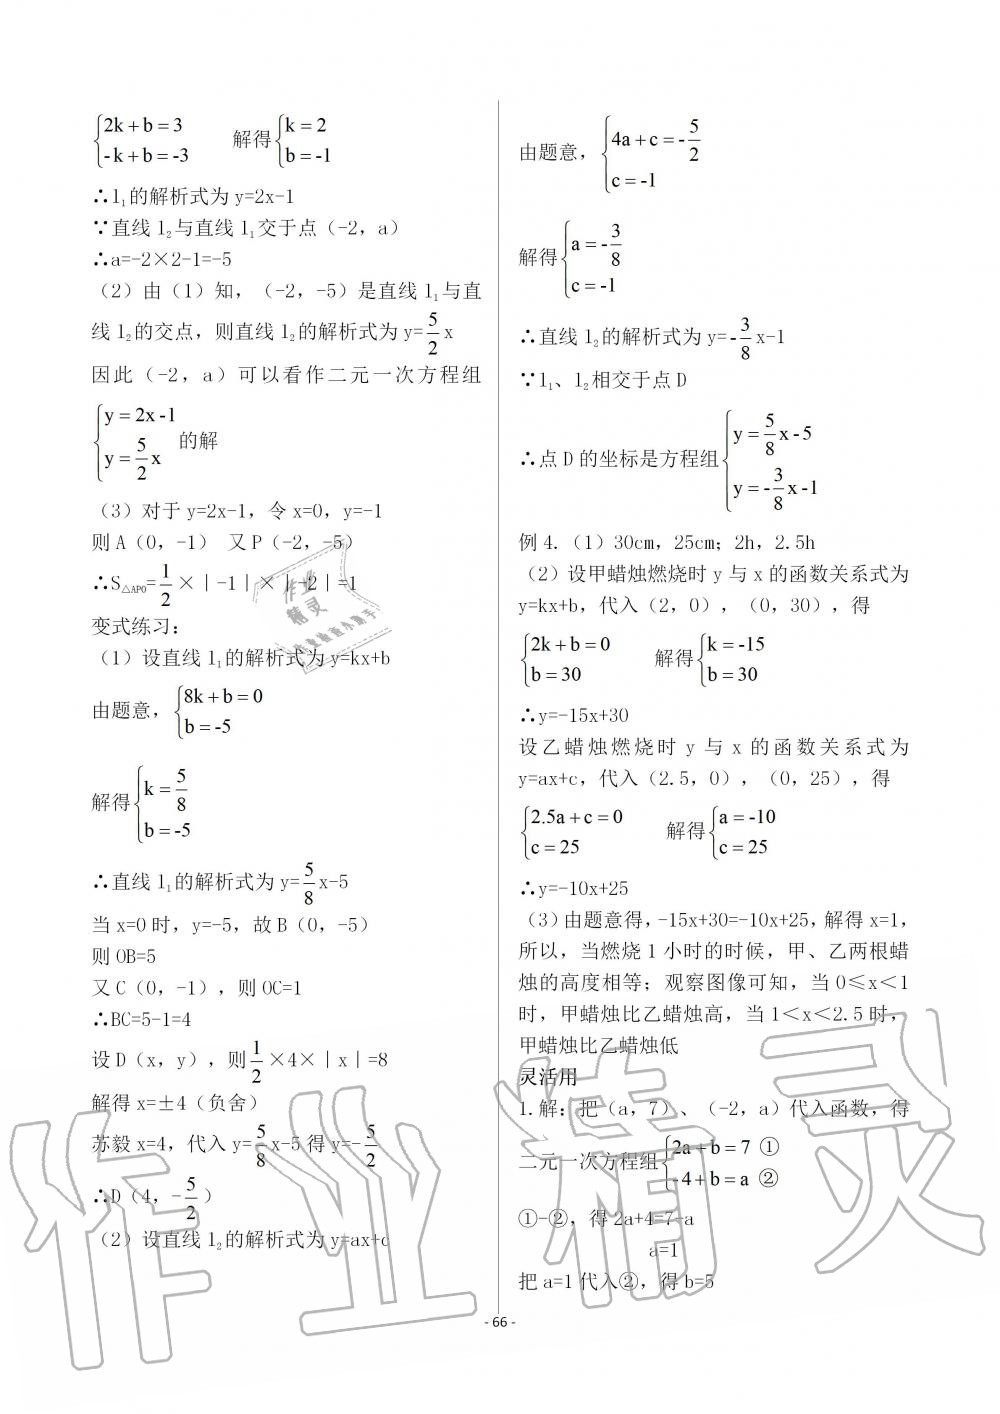 {2k+b=3
-k+b=-3 解得{k=2
b=-1
∴l₁的解析式为y=2x-1
∵直线l₂与直线l₁交于点（-2，a）
∴a=-2×2-1=-5
（2）由（1）知，（-2，-5）是直线l₁与直
线l₂的交点，则直线l₂的解析式为y=5/2x
因此（-2，a）可以看作二元一次方程组
{y=2x-1
y=5/2x 的解
（3）对于y=2x-1，令x=0，y=-1
则A（0，-1） 又P（-2，-5）
∴S△APO=1/2×|-1|×|-2|=1
变式练习：
（1）设直线l₁的解析式为y=kx+b
由题意，{8k+b=0
b=-5
解得{k=5/8
b=-5
∴直线l₁的解析式为y=5/8x-5
当x=0时，y=-5，故B（0，-5）
则OB=5
又C（0，-1），则OC=1
∴BC=5-1=4
设D（x，y），则1/2×4×|x|=8
解得x=±4（负舍）
苏毅x=4，代入y=5/8x-5得y=-5/2
∴D（4，-5/2）
（2）设直线l₂的解析式为y=ax+c
由题意，{4a+c=-5/2
c=-1
解得{a=-3/8
c=-1
∴直线l₂的解析式为y=-3/8x-1
∵l₁、l₂相交于点D
∴点D的坐标是方程组{y=5/8x-5
y=-3/8x-1
例4.（1）30cm，25cm；2h，2.5h
（2）设甲蜡烛燃烧时y与x的函数关系式为
y=kx+b，代入（2，0），（0，30），得
{2k+b=0
b=30 解得{k=-15
b=30
∴y=-15x+30
设乙蜡烛燃烧时y与x的函数关系式为
y=ax+c，代入（2.5，0），（0，25），得
{2.5a+c=0
c=25 解得{a=-10
c=25
∴y=-10x+25
（3）由题意得，-15x+30=-10x+25，解得x=1，
所以，当燃烧1小时的时候，甲、乙两根蜡
烛的高度相等；观察图像可知，当0≤x＜1
时，甲蜡烛比乙蜡烛高，当1＜x＜2.5时，
甲蜡烛比乙蜡烛低
灵活用
1.解：把（a，7）、（-2，a）代入函数，得
二元一次方程组{2a+b=7 ①
-4+b=a ②
①-②，得2a+4=7-a
a=1
把a=1代入②，得b=5
- 66 -
作业精灵
作业
精灵